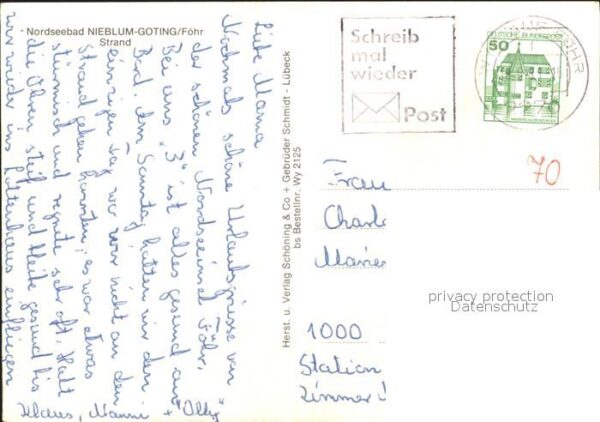 Nordseebad NIEBLUM-GOTING/Föhr
Strand
Liebe Mama
Nochmals schöne Urlaubsgrüsse von
der schönen Nordseeinsel Föhr,
Bei uns "3" ist alles gesund an
Bord, dem Samstag hatten wir den
einzigen Tag wo wir nicht an den
Strand gehen konnten, es war etwas
stürmisch und regnete sehr oft. Halt
die Ohren steif und bleibe gesund bis
wir wieder ins Lottenhaus einfliegen
Klaus, Nanni + "Olly"
Herst. u. Verlag Schöning & Co + Gebrüder Schmidt - Lübeck
bs Bestellnr. Wy 2125
Schreib
mal
wieder
Post
DEUTSCHE BUNDESPOST
50
FÖHR
70
Frau
Charl
Marie
1000
Station
Zimmer
privacy protection
Datenschutz